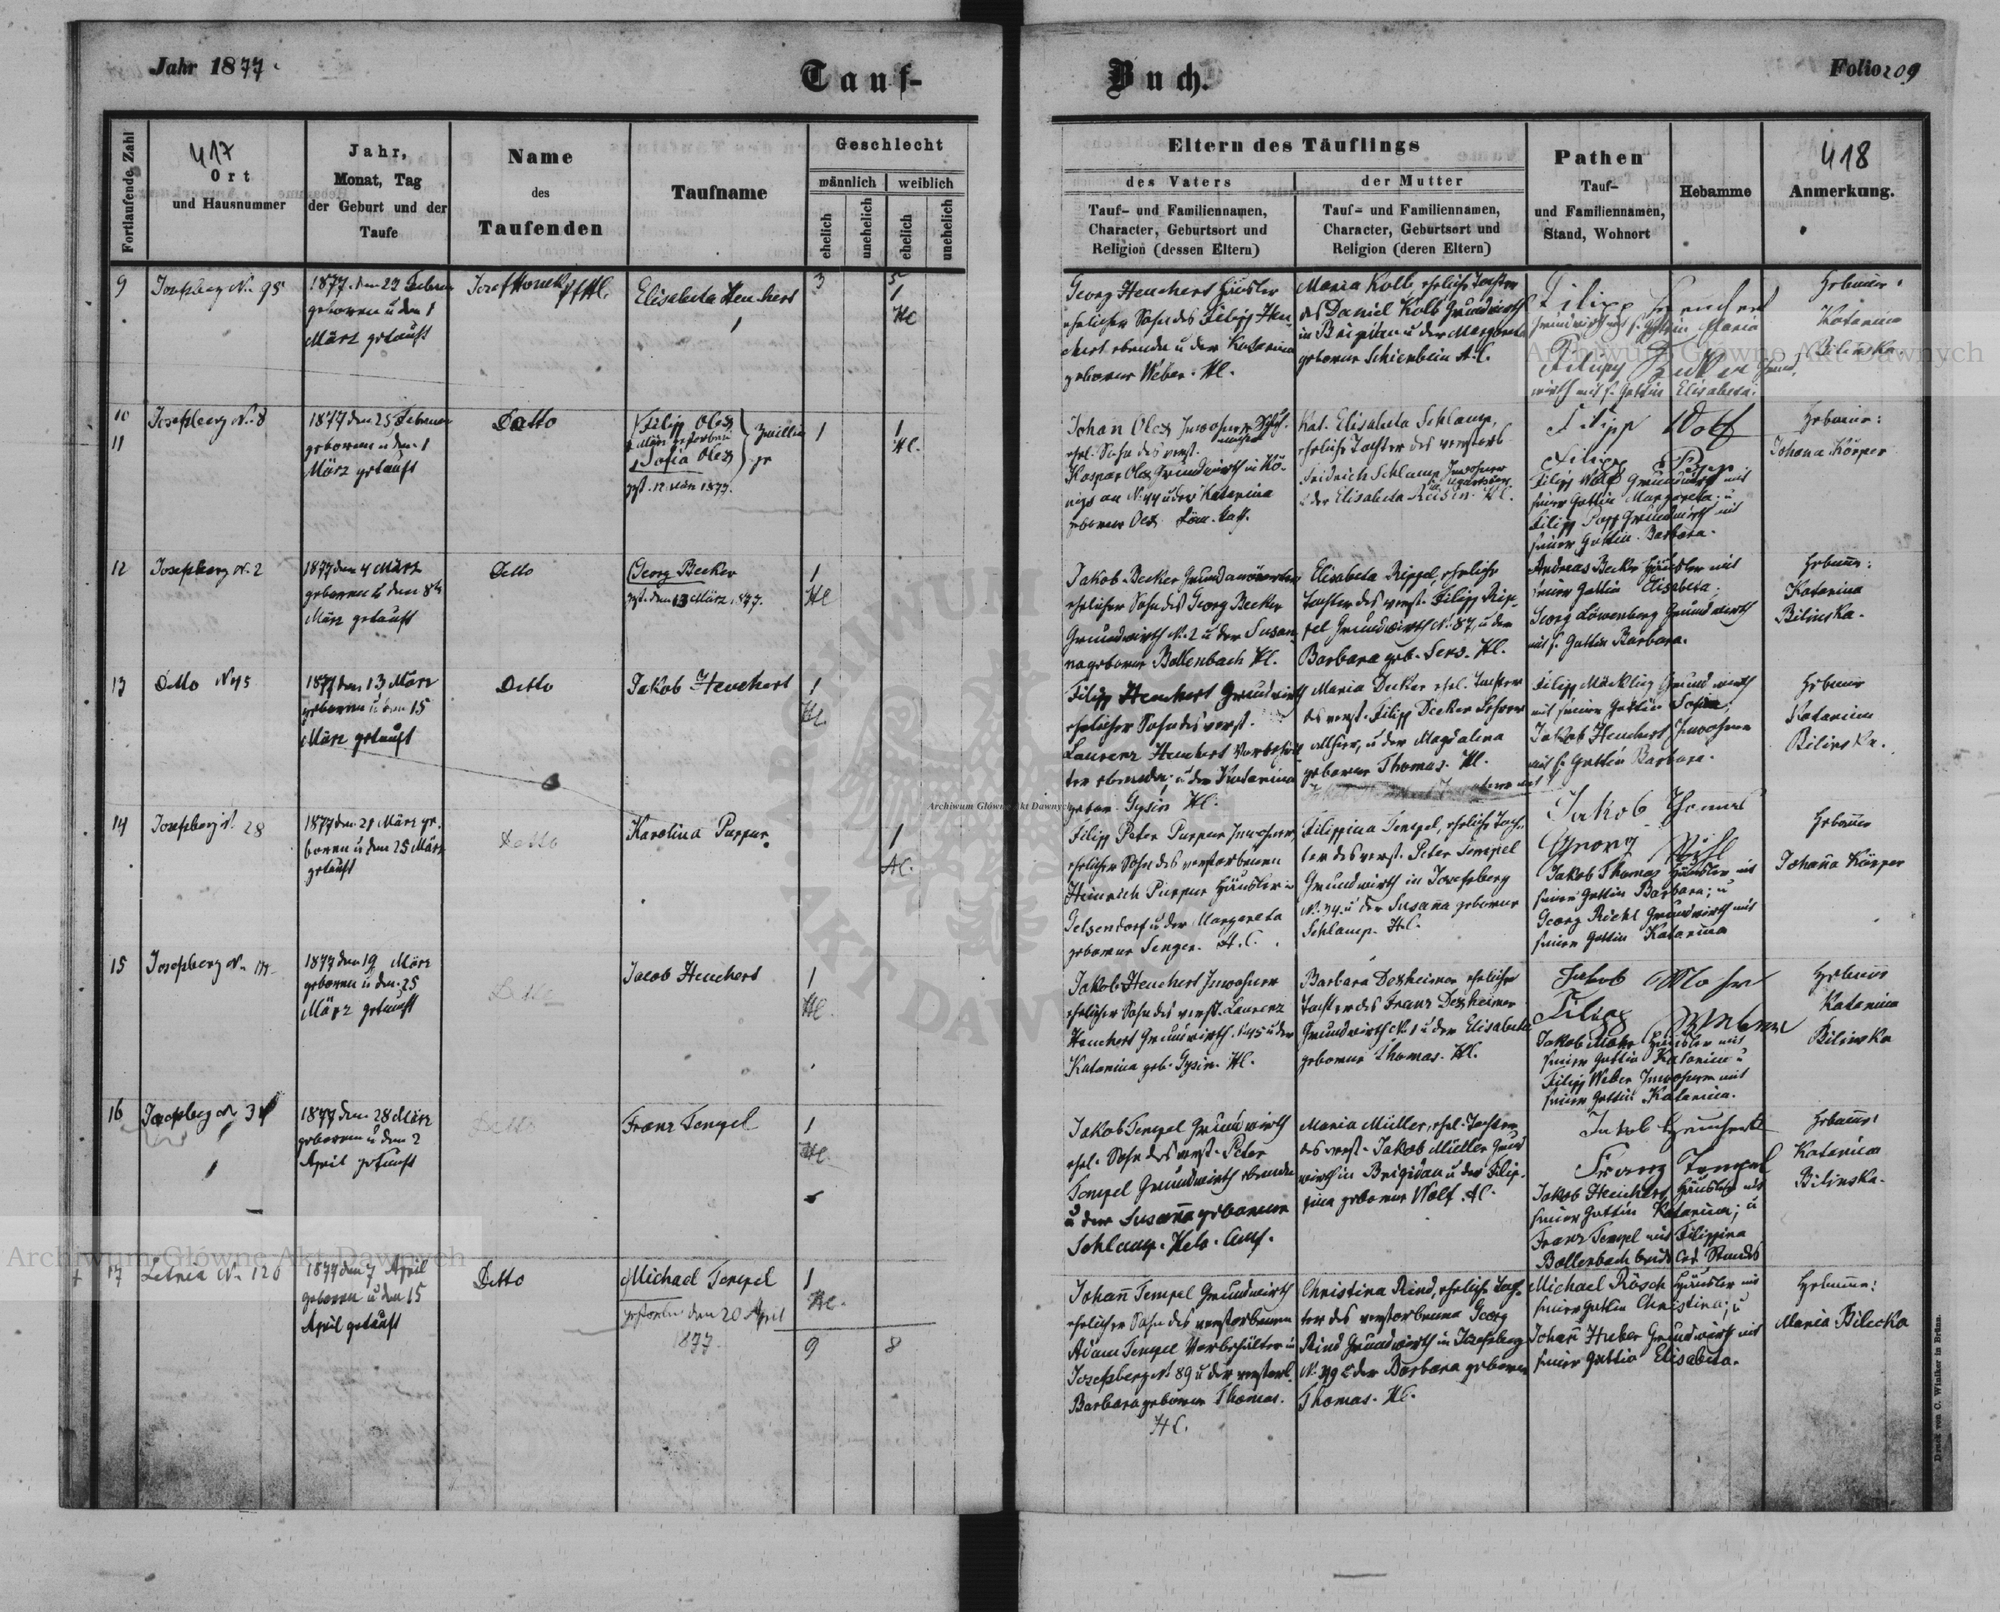 Jahr 1877.
Tauf-
Buch.
Folio 209
Fortlaufende Zahl
417
Ort
und Hausnummer
Jahr,
Monat, Tag
der Geburt und der
Taufe
Name
des
Taufenden
Taufname
Geschlecht
männlich
weiblich
ehelich
unehelich
ehelich
unehelich
Eltern des Täuflings
des Vaters
der Mutter
Tauf- und Familiennamen,
Character, Geburtsort und
Religion (dessen Eltern)
Tauf- und Familiennamen,
Character, Geburtsort und
Religion (deren Eltern)
Pathen
Tauf-
und Familiennamen,
Stand, Wohnort
Hebamme
418
Anmerkung.
9
Josefsberg N. 95
geboren u den 1
März getauft
Elisabeta Heuchert
3
5
1
HC
Georg Heuchert Häusler
ehelicher Sohn des Filipp Heu-
chert ebenda u der Katarina
geborene Weber. HC.
Maria Kolb, eheliche Tochter
des Daniel Kolb Grundwirth
in Brigidau u der Margareta
geborene Schienbein H.C.
Filipp Heuchert
Hebamme:
Katarina
Bilinska.
10
11
Josefsberg N. 8
1877 den 25 Februar
geboren u den 1
März getauft
Detto
Filipp Olex
Sofia Olex
gest. 12 März 1877.
1
1
HC.
geborene Olex Röm. Kath.
Kat. Elisabeta Schlamp,
Filipp Wolf
Filipp Popp
Filipp Wolf Grundwirth mit
seiner Gattin Margareta; u
Filipp Popp Grundwirth mit
seiner Gattin Barbara.
Hebamme:
Johana Körper
12
Josefsberg N. 2
1877 den 4 März
geboren u den 8
März getauft
Detto
Georg Becker
gest. den 13 März 1877.
1
HC
ehelicher Sohn des Georg Becker
Grundwirth N. 2 u der Susan-
na geborene Bollenbach HC.
Elisabeta Rippel, eheliche
Tochter des verst. Filipp Rip-
pel Grundwirth N. 87, u der
Andreas Becker Häusler mit
seiner Gattin Elisabeta;
Georg Löwenberg Grundwirth
mit s. Gattin Barbara.
Hebamme:
Katarina
Bilinska.
13
Detto N 45
1877 den 13 März
geboren u den 15
März getauft
Detto
Jakob Heuchert
1
HC
Filipp Heuchert Grundwirth
ehelicher Sohn des verst.
Laurenz Heuchert Vorbehäl-
ter ebenda; u der Katarina
gebor. Gysin HC.
Maria Decker ehel. Tochter
des verst. Filipp Decker Lehrer
u der Magdalena
geborene Thomas. HC.
Filipp Mäckling Grundwirth
mit seiner Gattin Sofia;
Jakob Heuchert, Inwohner
mit s. Gattin Barbara.
Hebamme
Katarina
Bilinska.
14
Josefsberg N. 28
1877 den 21 März ge-
boren u den 25 März
getauft
Detto
Karolina Purpur
1
HC.
Filipp Peter Purpur Inwohner,
ehelicher Sohn des verstorbenen
Heinrich Purpur Häusler in
Gelsendorf u der Margareta
geborene Senger. H.C.
Filippina Tempel, eheliche Toch-
ter des verst. Peter Tempel
Grundwirth in Josefsberg
N. 34 u der Susana geborene
Schlamp. H.C.
Jakob Thomas
Jakob Thomas Häusler mit
seiner Gattin Barbara; u
Georg Riehl Grundwirth mit
seiner Gattin Katarina
Hebamme
Johana Körper
15
1877 den 19 März
geboren u den 25
März getauft
Detto
Jacob Heuchert
1
HC.
Jakob Heuchert Inwohner
ehelicher Sohn des verst. Laurenz
Heuchert Grundwirth N. 45 u der
Katarina geb. Gysin. HC.
Barbara Dexheimer eheliche
Tochter des Franz Dexheimer
Grundwirth N. 1 u der Elisabeta
geborene Thomas. HC.
Jakob Mohr
Filipp Weber
Jakob Mohr Häusler mit
seiner Gattin Katarina u
Filipp Weber Inwohner mit
seiner Gattin Katarina.
Hebamme
Katarina
Bilinska
16
Josefsberg N. 34
1877 den 28 März
geboren u den 2
April getauft
Detto
Franz Tempel
1
HC.
Jakob Tempel Grundwirth
ehel. Sohn des verst. Peter
Tempel Grundwirth ebenda
u der Susana geborene
Schlamp. Helv. Conf.
Maria Müller, ehel. Tochter
des verst. Jakob Müller Grund
wirth in Brigidau u der Filip-
pina geborene Wolf. HC.
Jakob Heuchert
Franz Tempel
Jakob Heuchert Häusler mit
seiner Gattin Katarina; u
Franz Tempel mit Filippina
Bollenbach beide led. Standes
Hebamme:
Katarina
Bilinska.
17
Letnia N. 126
1877 den 7 April
geboren u den 15
April getauft
Detto
Michael Tempel
gestorben den 20 April
1877.
1
HC.
9
8
Johann Tempel Grundwirth
ehelicher Sohn des verstorbenen
Adam Tempel Vorbehälter in
Josefsberg N. 89 u der verstorb.
Barbara geborene Thomas.
HC.
Christina Rind, eheliche Toch-
ter des verstorbenen Georg
Rind Grundwirth in Josefsberg
Thomas. HC.
Michael Rösch Häusler mit
seiner Gattin Christina; u
Johann Huber Grundwirth mit
seiner Gattin Elisabeta.
Hebamme:
Maria Bilecka
Druck von C. Winiker in Brünn.
Archiwum Główne Akt Dawnych
Archiwum Główne Akt Dawnych
Archiwum Główne Akt Dawnych